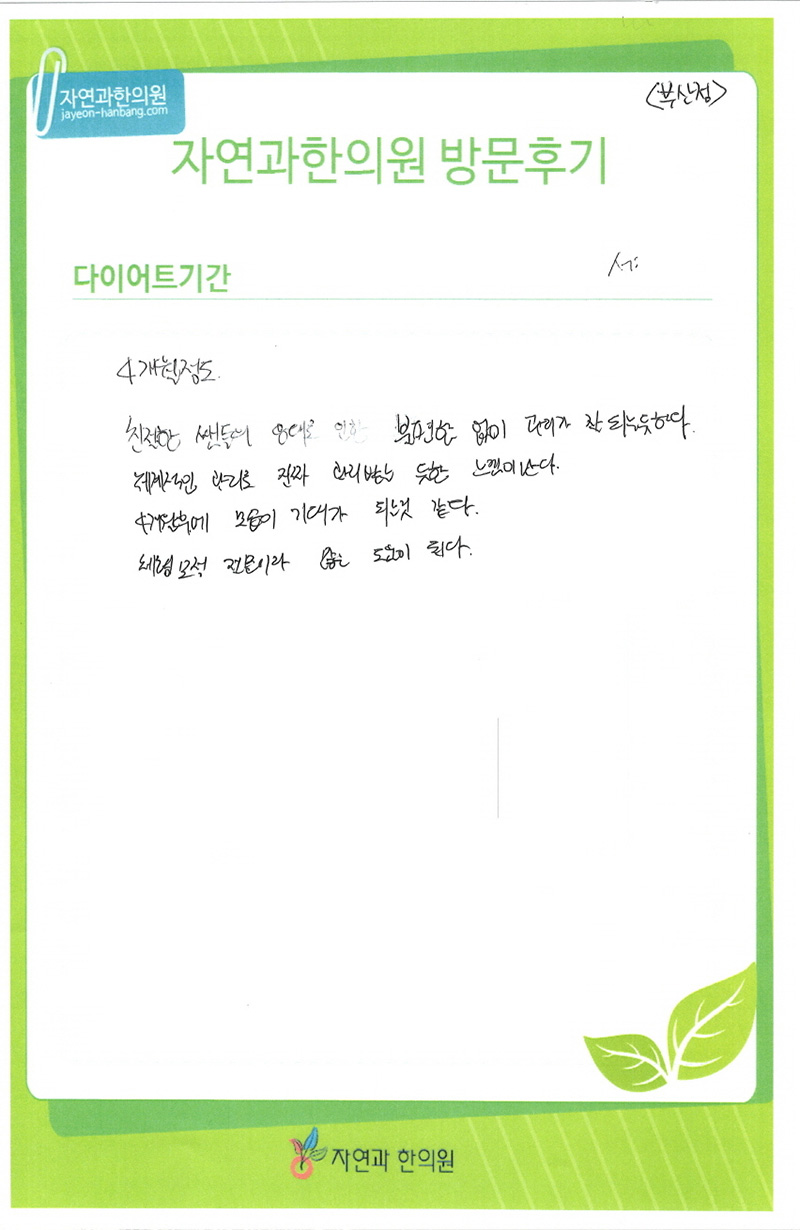 <부산점>
자연과한의원
jayeon-hanbang.com
자연과한의원 방문후기
다이어트기간
서
4개월정도.
친절한 쌤들의 응대로 인한 불편함 없이 관리가 잘 되는듯하다.
체계적인 관리로 진짜 관리받는 듯한 느낌이난다.
4개월후에 모습이 기대가 되는것 같다.
체형 전문이라 도움이 된다.
자연과 한의원